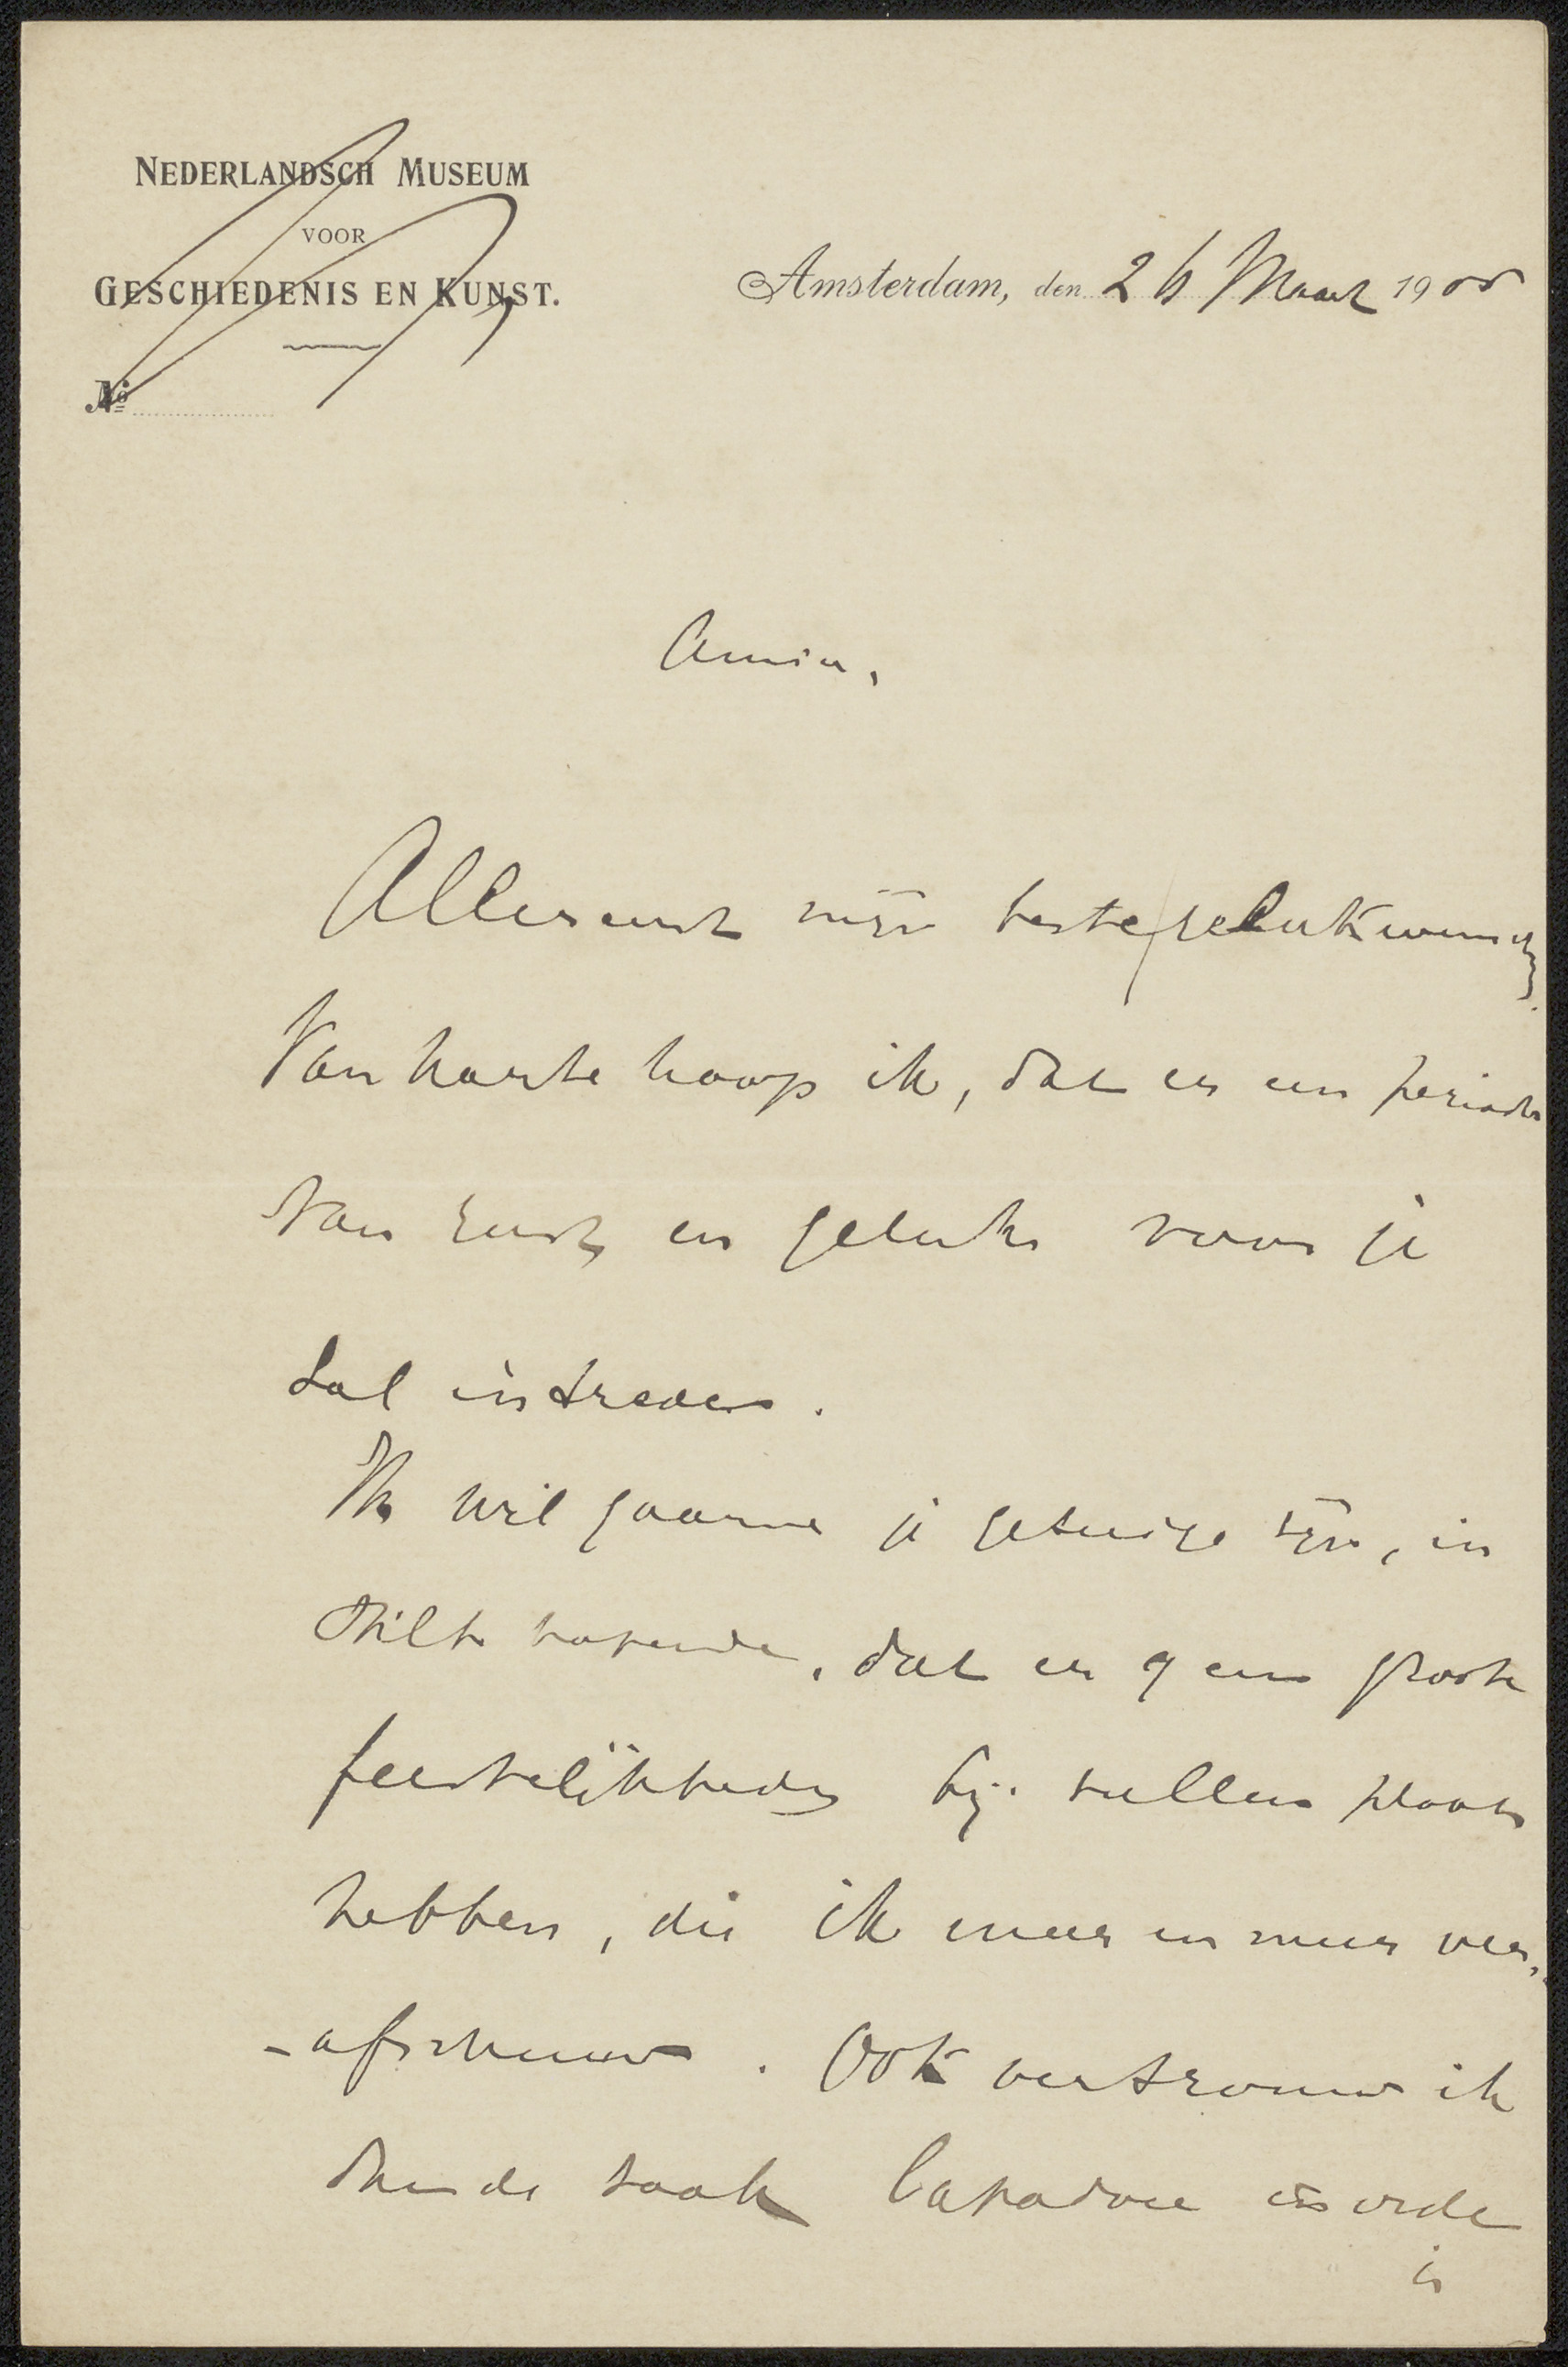 NEDERLANDSCH MUSEUM
VOOR
GESCHIEDENIS EN KUNST.
Nº
Amsterdam, den 26 Maart 1900
Amice,
Allereerst mijn beste gelukwensch.
Van harte hoop ik, dat er een periode
van rust en geluk voor je
zal intreden.
Ik wil gaarne je getuige zijn, in
stilte hopende, dat er geen groote
feestelijkheden bij zullen plaats
hebben, die ik meer en meer ver-
-afschuuw. Ook vertrouw ik
de zaak Capadose in orde
is